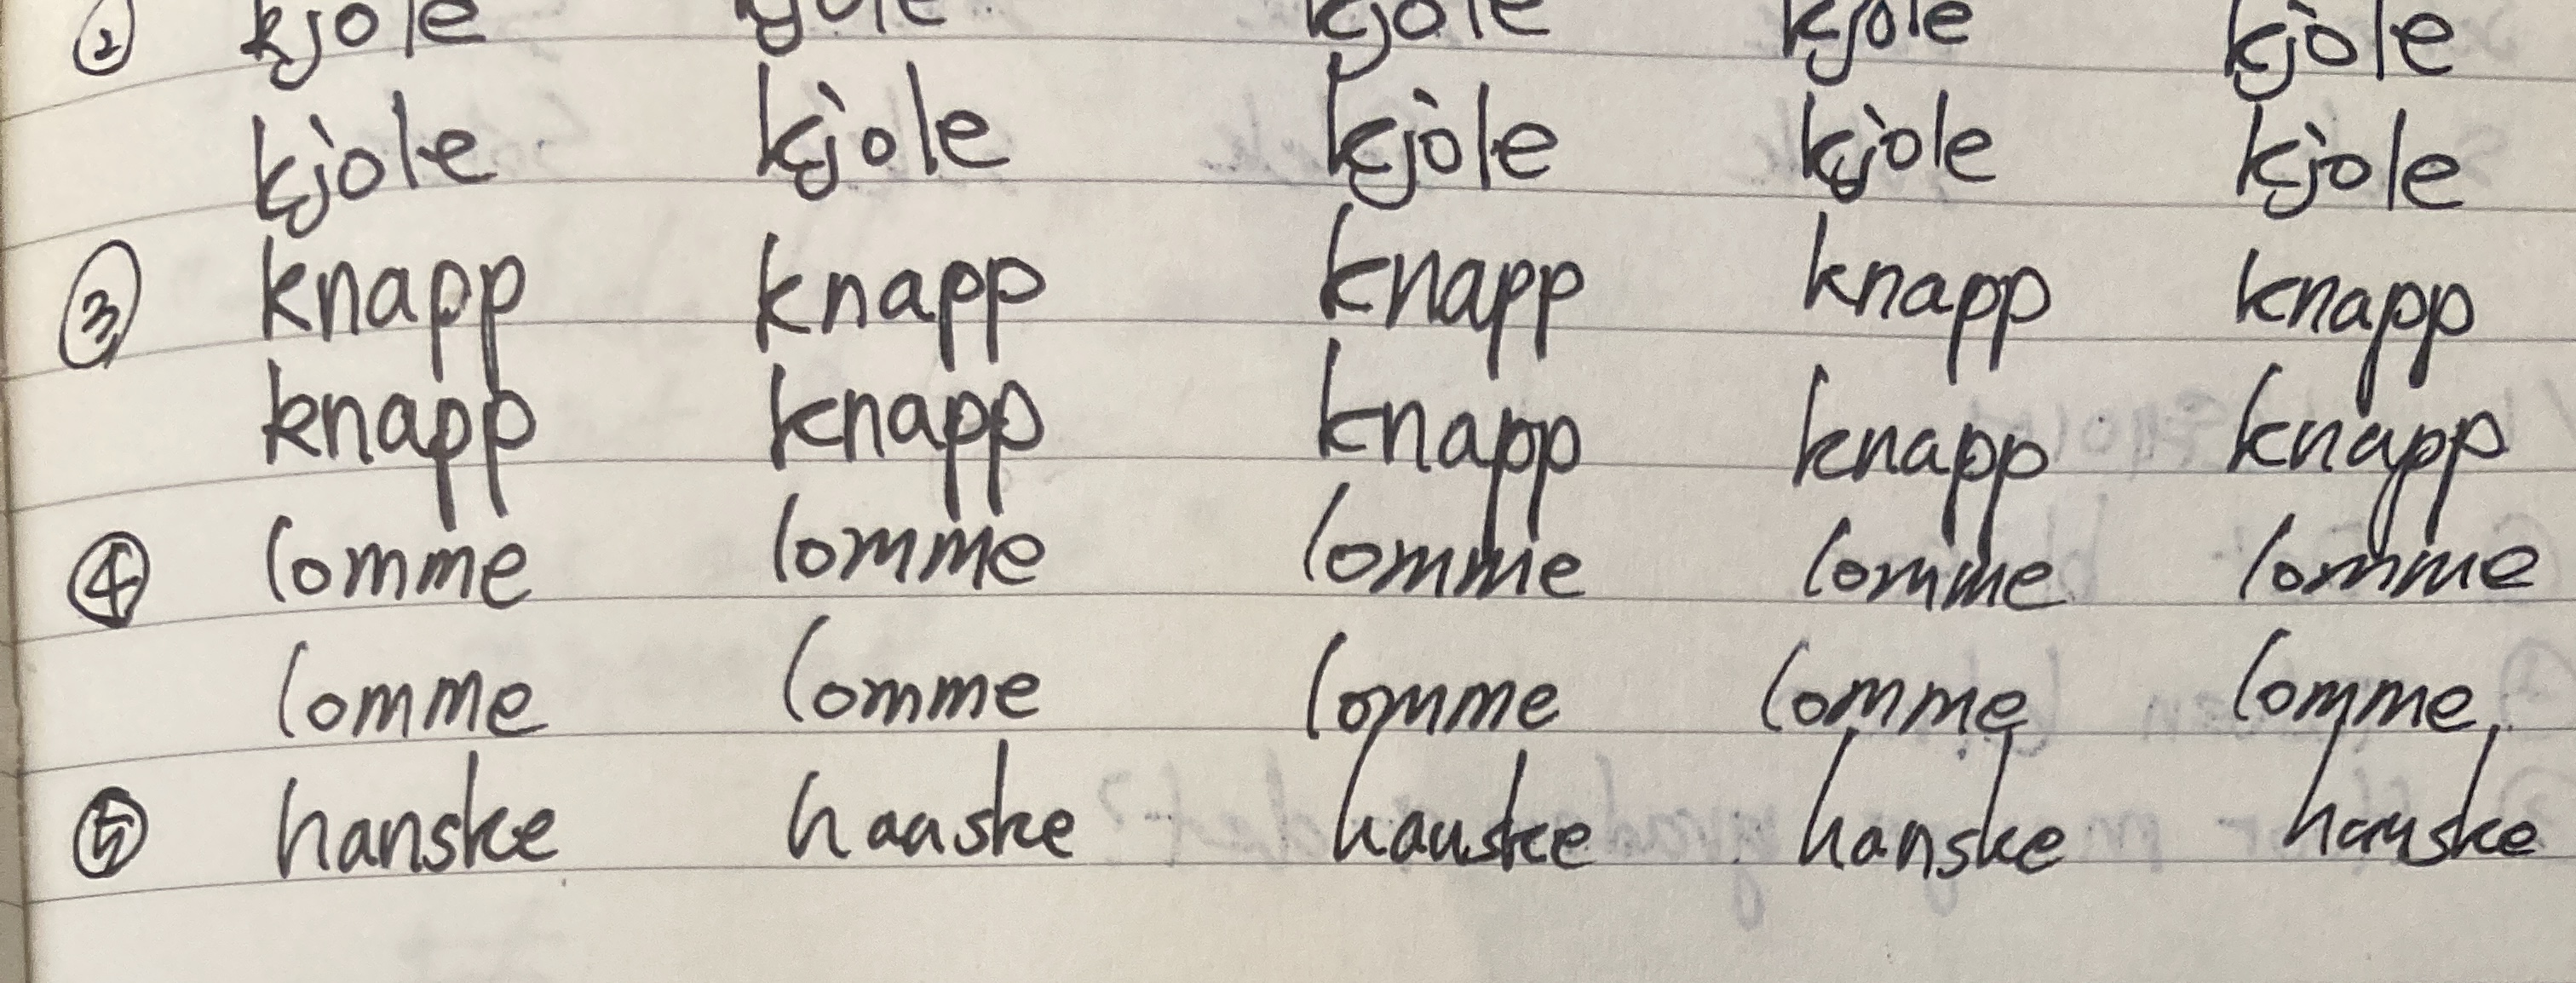 ② kjole kjole kjole kjole kjole
kjole kjole kjole kjole kjole
③ knapp knapp knapp knapp knapp
knapp knapp knapp knapp knapp
④ lomme lomme lomme lomme lomme
lomme lomme lomme lomme lomme
⑤ hanske hanske hanske hanske hanske